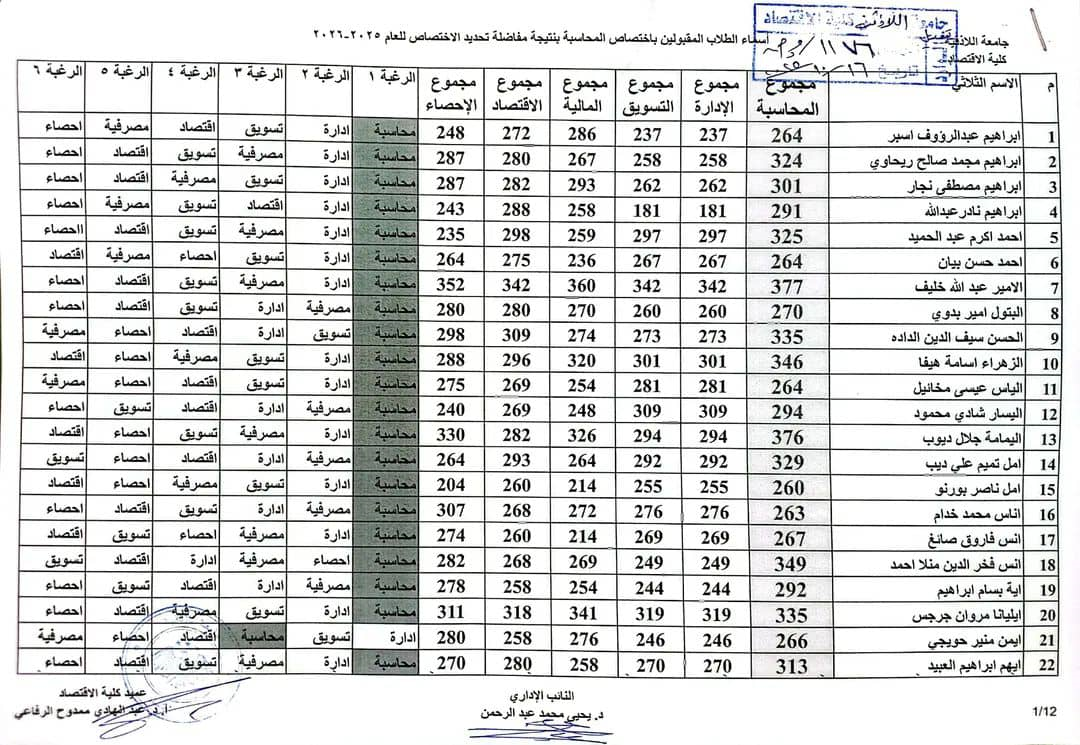 جامعة اللاذقية
كلية الاقتصاد
جامعة اللاذقية كلية الاقتصاد
١١٧٦ / وص
تاريخ ٢٠٢٥/١٠/١٦
أسماء الطلاب المقبولين باختصاص المحاسبة بنتيجة مفاضلة تحديد الاختصاص للعام ٢٠٢٥-٢٠٢٦
م الاسم الثلاثي مجموع المحاسبة مجموع الإدارة مجموع التسويق مجموع المالية مجموع الاقتصاد مجموع الإحصاء الرغبة ١ الرغبة ٢ الرغبة ٣ الرغبة ٤ الرغبة ٥ الرغبة ٦
1 ابراهيم عبدالرؤوف اسبر 264 237 237 286 272 248 محاسبة ادارة تسويق اقتصاد مصرفية احصاء
2 ابراهيم محمد صالح ريحاوي 324 258 258 267 280 287 محاسبة ادارة مصرفية تسويق اقتصاد احصاء
3 ابراهيم مصطفى نجار 301 262 262 293 282 287 محاسبة ادارة تسويق مصرفية اقتصاد احصاء
4 ابراهيم نادر عبدالله 291 181 181 258 288 243 محاسبة ادارة اقتصاد تسويق مصرفية احصاء
5 احمد اكرم عبد الحميد 325 297 297 259 298 235 محاسبة ادارة مصرفية تسويق اقتصاد ااحصاء
6 احمد حسن بيان 264 267 267 236 275 264 محاسبة ادارة تسويق احصاء مصرفية اقتصاد
7 الامير عبد الله خليف 377 342 342 360 342 352 محاسبة ادارة مصرفية تسويق اقتصاد احصاء
8 البتول امير بدوي 270 260 260 270 280 280 محاسبة مصرفية ادارة تسويق اقتصاد احصاء
9 الحسن سيف الدين الداده 335 273 273 274 309 298 محاسبة تسويق ادارة اقتصاد احصاء مصرفية
10 الزهراء اسامة هيفا 346 301 301 320 296 288 محاسبة ادارة تسويق مصرفية احصاء اقتصاد
11 الياس عيسى مخائيل 264 281 281 254 269 275 محاسبة ادارة تسويق اقتصاد احصاء مصرفية
12 اليسار شادي محمود 294 309 309 248 269 240 محاسبة مصرفية ادارة اقتصاد تسويق احصاء
13 اليمامة جلال ديوب 376 294 294 326 282 330 محاسبة ادارة مصرفية تسويق احصاء اقتصاد
14 امل تميم علي ديب 329 292 292 264 293 264 محاسبة مصرفية ادارة اقتصاد احصاء تسويق
15 امل ناصر بورنو 260 255 255 214 260 204 محاسبة ادارة تسويق مصرفية احصاء اقتصاد
16 اناس محمد خدام 263 276 276 272 268 307 محاسبة مصرفية ادارة تسويق اقتصاد احصاء
17 انس فاروق صائغ 267 269 269 214 260 274 محاسبة ادارة مصرفية احصاء تسويق اقتصاد
18 انس فخر الدين منلا احمد 349 249 249 269 268 282 محاسبة احصاء مصرفية ادارة اقتصاد تسويق
19 اية بسام ابراهيم 292 244 244 254 258 278 محاسبة مصرفية ادارة اقتصاد تسويق احصاء
20 ايليانا مروان جرجس 335 319 319 341 318 311 محاسبة ادارة تسويق مصرفية اقتصاد احصاء
21 ايمن منير حويجي 266 246 246 276 258 280 ادارة تسويق محاسبة اقتصاد احصاء مصرفية
22 ايهم ابراهيم العبيد 313 270 270 258 280 270 محاسبة ادارة مصرفية تسويق اقتصاد احصاء
1/12
النائب الإداري
د. يحيى محمد عبد الرحمن
عميد كلية الاقتصاد
أ. د. عبد الهادي ممدوح الرفاعي